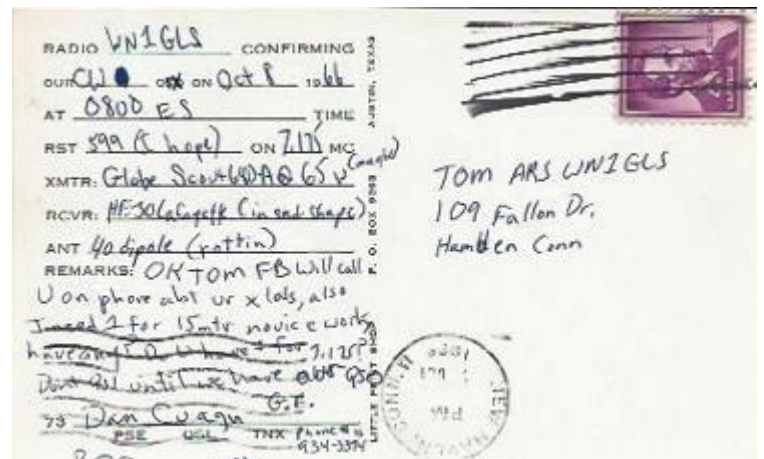 RADIO WN1GLS CONFIRMING
OUR CW ON Oct 8 1966
AT 0800 ES TIME
RST 599 (I hope) ON 7.175 MC
XMTR: Globe Scout 680A @ 65 (maybe)
RCVR: HE-30 Lafayette (in sad shape)
ANT 40 dipole (rottin)
REMARKS: OK TOM FB Will call
U on phone abt ur xtals, also
I need 1 for 15mtr novice work,
have any? have for
Dont until we have QSO
G.E.
73 Dan Cuagn
PSE QSL TNX Phone #
934-3374
AUSTIN, TEXAS
P. O. BOX 9393
LITTLE PRINT SHOP
TOM ARS WN1GLS
109 Fallon Dr.
Hamden Conn
NEW HAVEN, CONN.
PM
1966